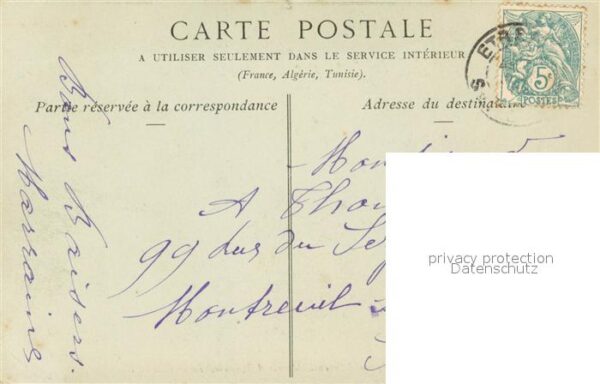 CARTE POSTALE
A UTILISER SEULEMENT DANS LE SERVICE INTÉRIEUR
(France, Algérie, Tunisie).
Partie réservée à la correspondance
Adresse du destinataire
Bons Baisers.
Marraine
A Thou
99 du
Montreuil
5c
POSTES
privacy protection
Datenschutz